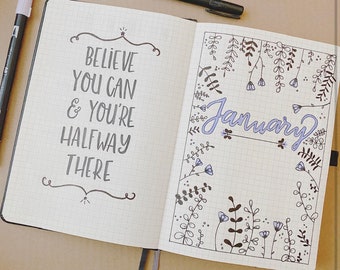 BELIEVE
YOU CAN
& YOU'RE
HALFWAY
THERE
January